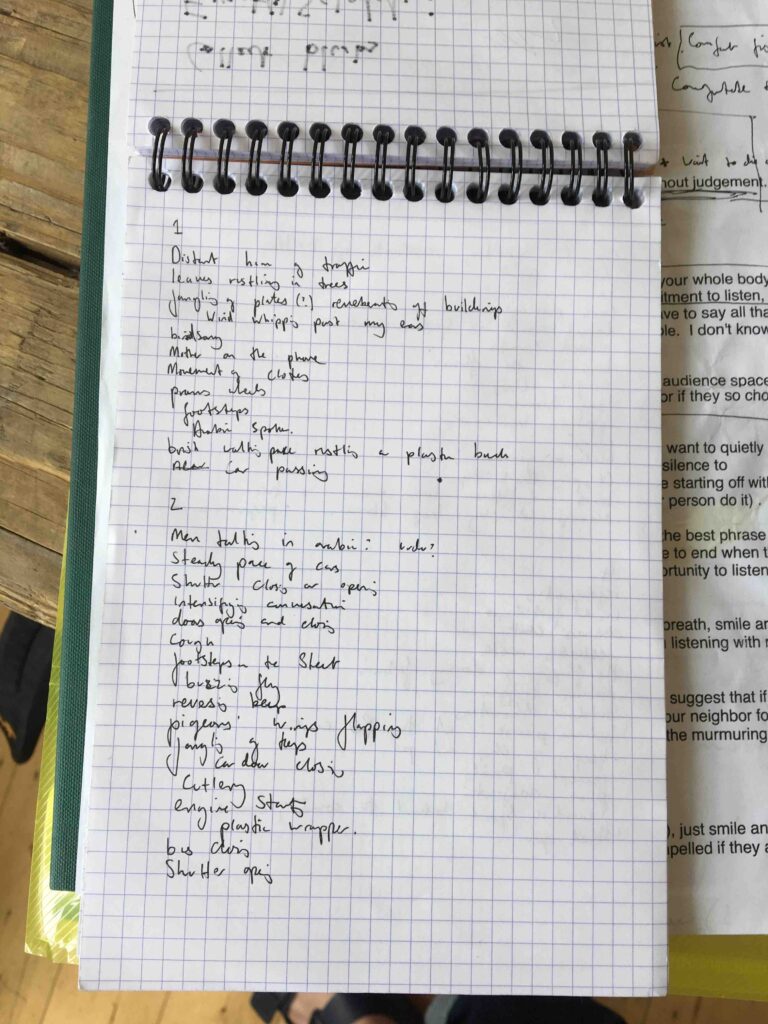 Collect
1
Distant hum of traffic
leaves rustling in trees
Jangling of plates (!) reverberates off buildings
Wind whipping past my ears
birdsong
Mother on the phone
Movement of clothes
prams wheels
footsteps
Arabic spoken.
brisk walking pace rustling a plastic
car passing
2
Men talking in arabic? urdu?
Steady pace of cars
Shutter closing or opening
Intensifying conversation
doors opening and closing
Cough
footsteps on the Street
buzzing fly
reversing beep
pigeons' wings flapping
Jangling of keys
car door closing
Cutlery
engine starting
plastic wrapper.
bus closing
Shutter opening
Comfort
Complete
wait to
hout judgement.
your whole body
itment to listen,
ve to say all tha
le. I don't know
audience space
or if they so cho
want to quietly
silence to
e starting off wit
person do it) .
he best phrase
e to end when t
ortunity to listen
breath, smile an
listening with
suggest that if
our neighbor fo
the murmuring
), just smile an
pelled if they a